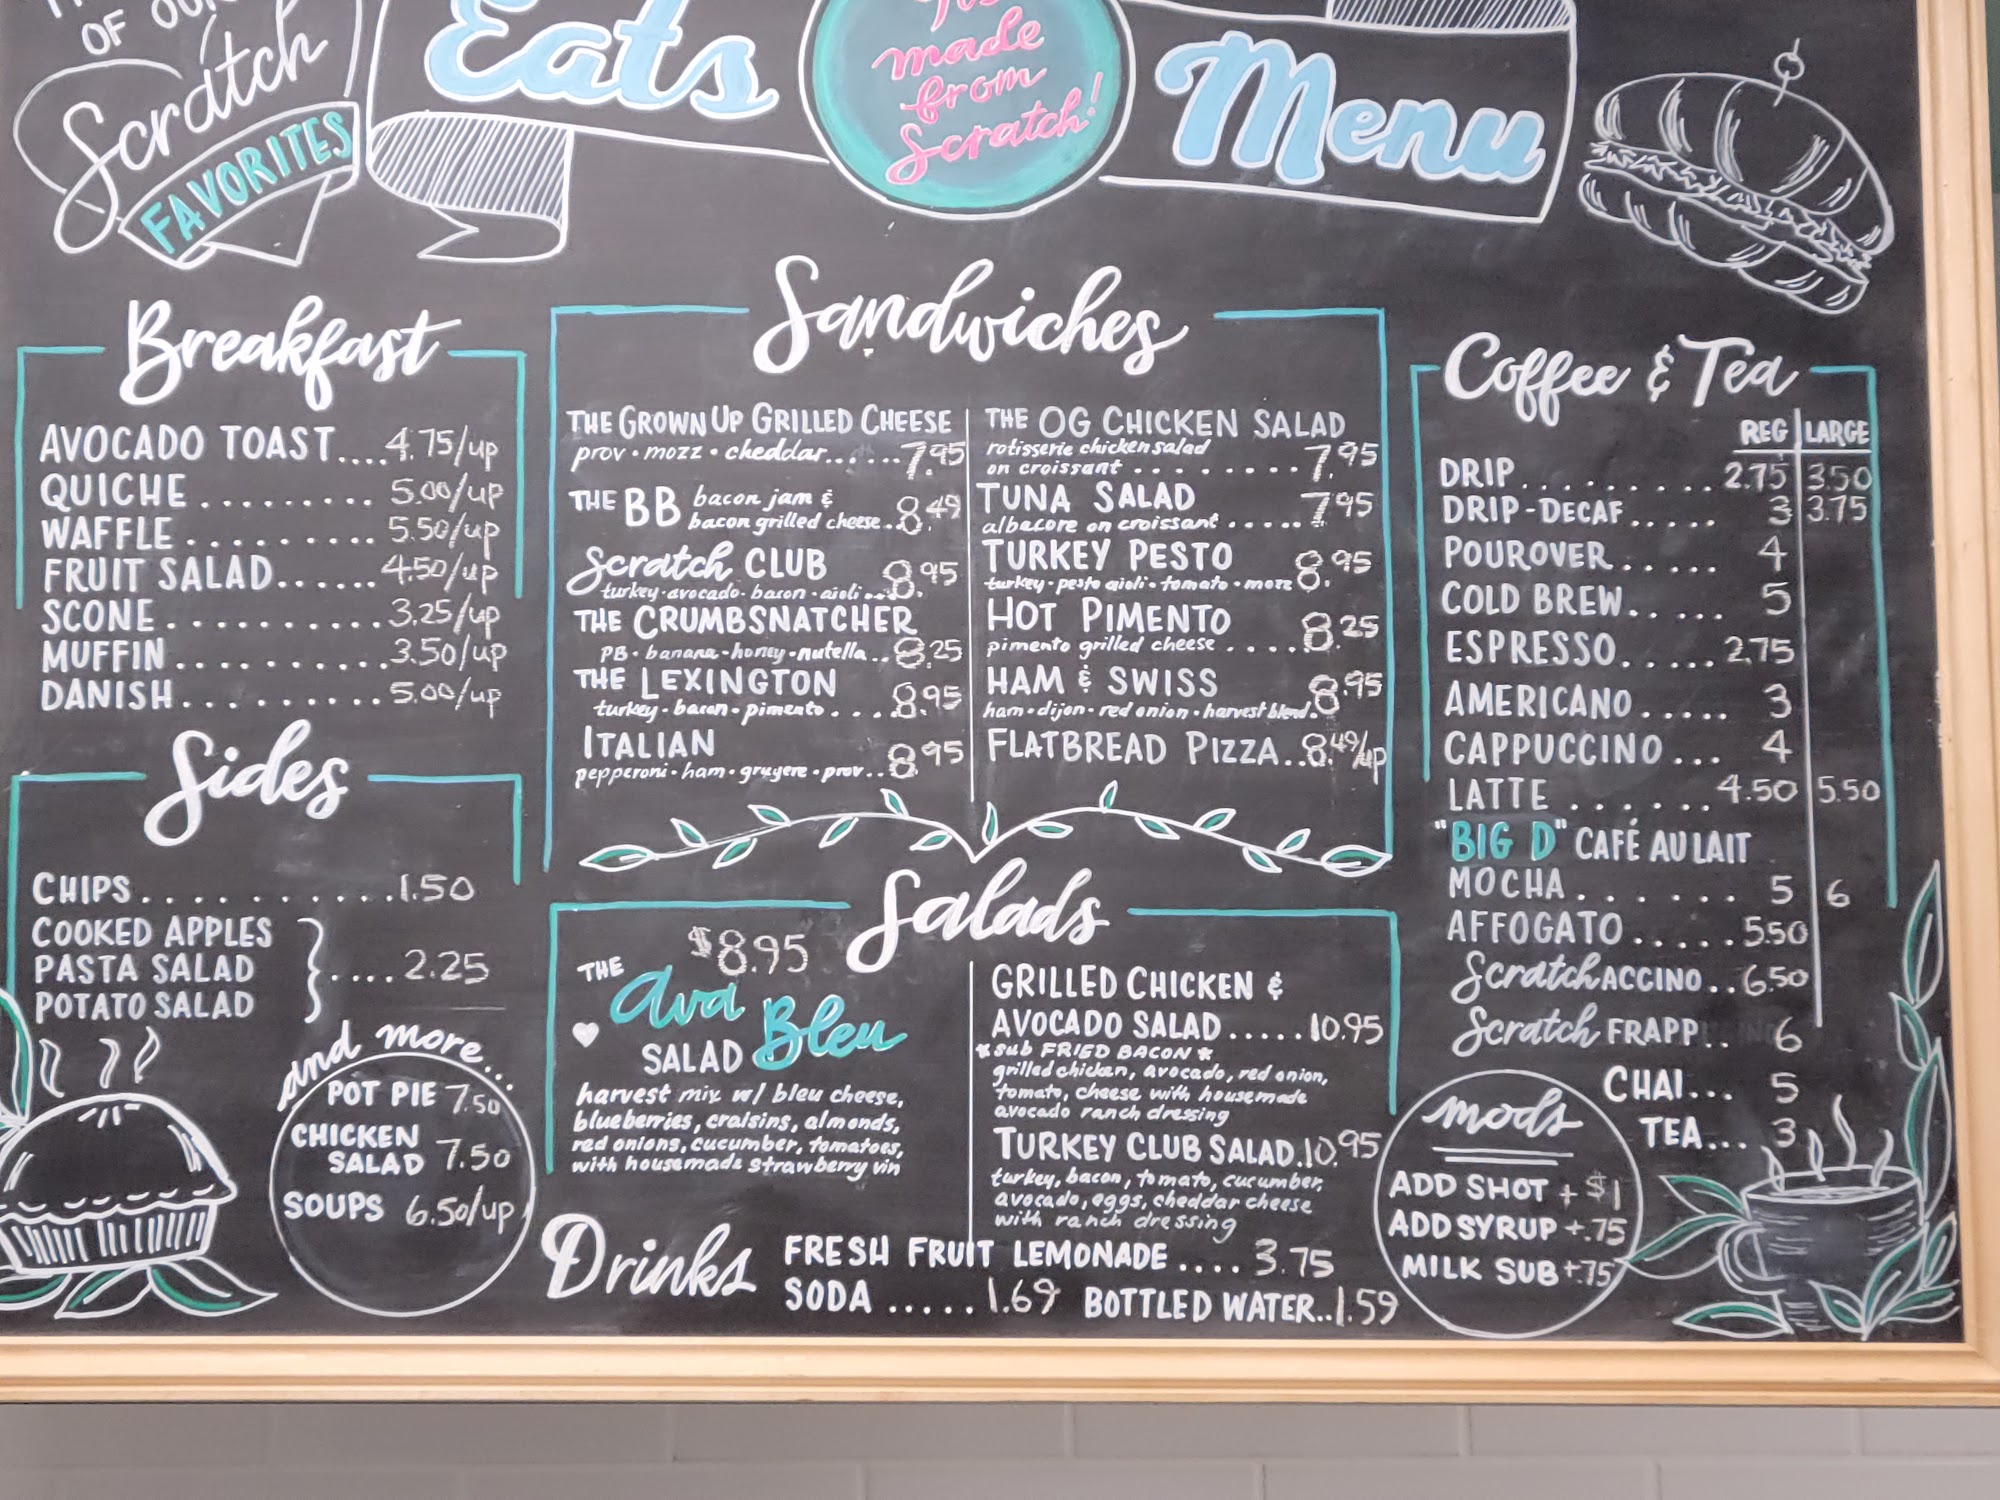 OF OUR
Scratch
FAVORITES
Eats
made
from
Scratch!
Menu
Breakfast
AVOCADO TOAST....4.75/up
QUICHE.........5.00/up
WAFFLE.........5.50/up
FRUIT SALAD......4.50/up
SCONE..........3.25/up
MUFFIN..........3.50/up
DANISH.........5.00/up
Sides
CHIPS...........1.50
COOKED APPLES
PASTA SALAD ....2.25
POTATO SALAD
and more...
POT PIE 7.50
CHICKEN
SALAD 7.50
SOUPS 6.50/up
Sandwiches
THE GROWN UP GRILLED CHEESE
prov • mozz • cheddar......7.95
THE BB bacon jam &
bacon grilled cheese..8.49
Scratch CLUB
turkey • avocado • bacon • aioli...8.95
THE CRUMBSNATCHER
PB • banana • honey • nutella..8.25
THE LEXINGTON
turkey • bacon • pimento....8.95
ITALIAN
pepperoni • ham • gruyere • prov..8.95
THE OG CHICKEN SALAD
rotisserie chicken salad
on croissant.........7.95
TUNA SALAD
albacore on croissant.....7.95
TURKEY PESTO
turkey • pesto aioli • tomato • mozz 8.95
HOT PIMENTO
pimento grilled cheese....8.25
HAM & SWISS
ham • dijon • red onion • harvest blend.8.95
FLATBREAD PIZZA..8.49/up
Salads
$8.95
THE Ava Bleu
SALAD
harvest mix w/ bleu cheese,
blueberries, craisins, almonds,
red onions, cucumber, tomatoes,
with housemade strawberry vin
GRILLED CHICKEN &
AVOCADO SALAD.....10.95
*sub FRIED BACON*
grilled chicken, avocado, red onion,
tomato, cheese with housemade
avocado ranch dressing
TURKEY CLUB SALAD.10.95
turkey, bacon, tomato, cucumber,
avocado, eggs, cheddar cheese
with ranch dressing
Drinks
FRESH FRUIT LEMONADE....3.75
SODA.....1.69 BOTTLED WATER..1.59
Coffee & Tea
REG LARGE
DRIP..........2.75 3.50
DRIP-DECAF..... 3 3.75
POUROVER...... 4
COLD BREW...... 5
ESPRESSO.....2.75
AMERICANO..... 3
CAPPUCCINO... 4
LATTE.......4.50 5.50
"BIG D" CAFÉ AU LAIT
MOCHA....... 5 6
AFFOGATO.....5.50
ScratchACCINO..6.50
Scratch FRAPP.. 6
CHAI... 5
TEA... 3
mods
ADD SHOT + $1
ADD SYRUP +.75
MILK SUB +.75